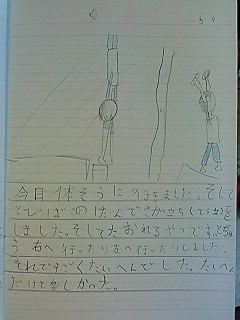 今日体そうに行きました。そして
とびばこのはんたいでさか立ち(てら立)を
しました。そしてたおれるやつです。とちゅ
う右へ行ったり左へ行ったりしました。
それですごくたいへんでした。たいへん
だけど楽しかった。